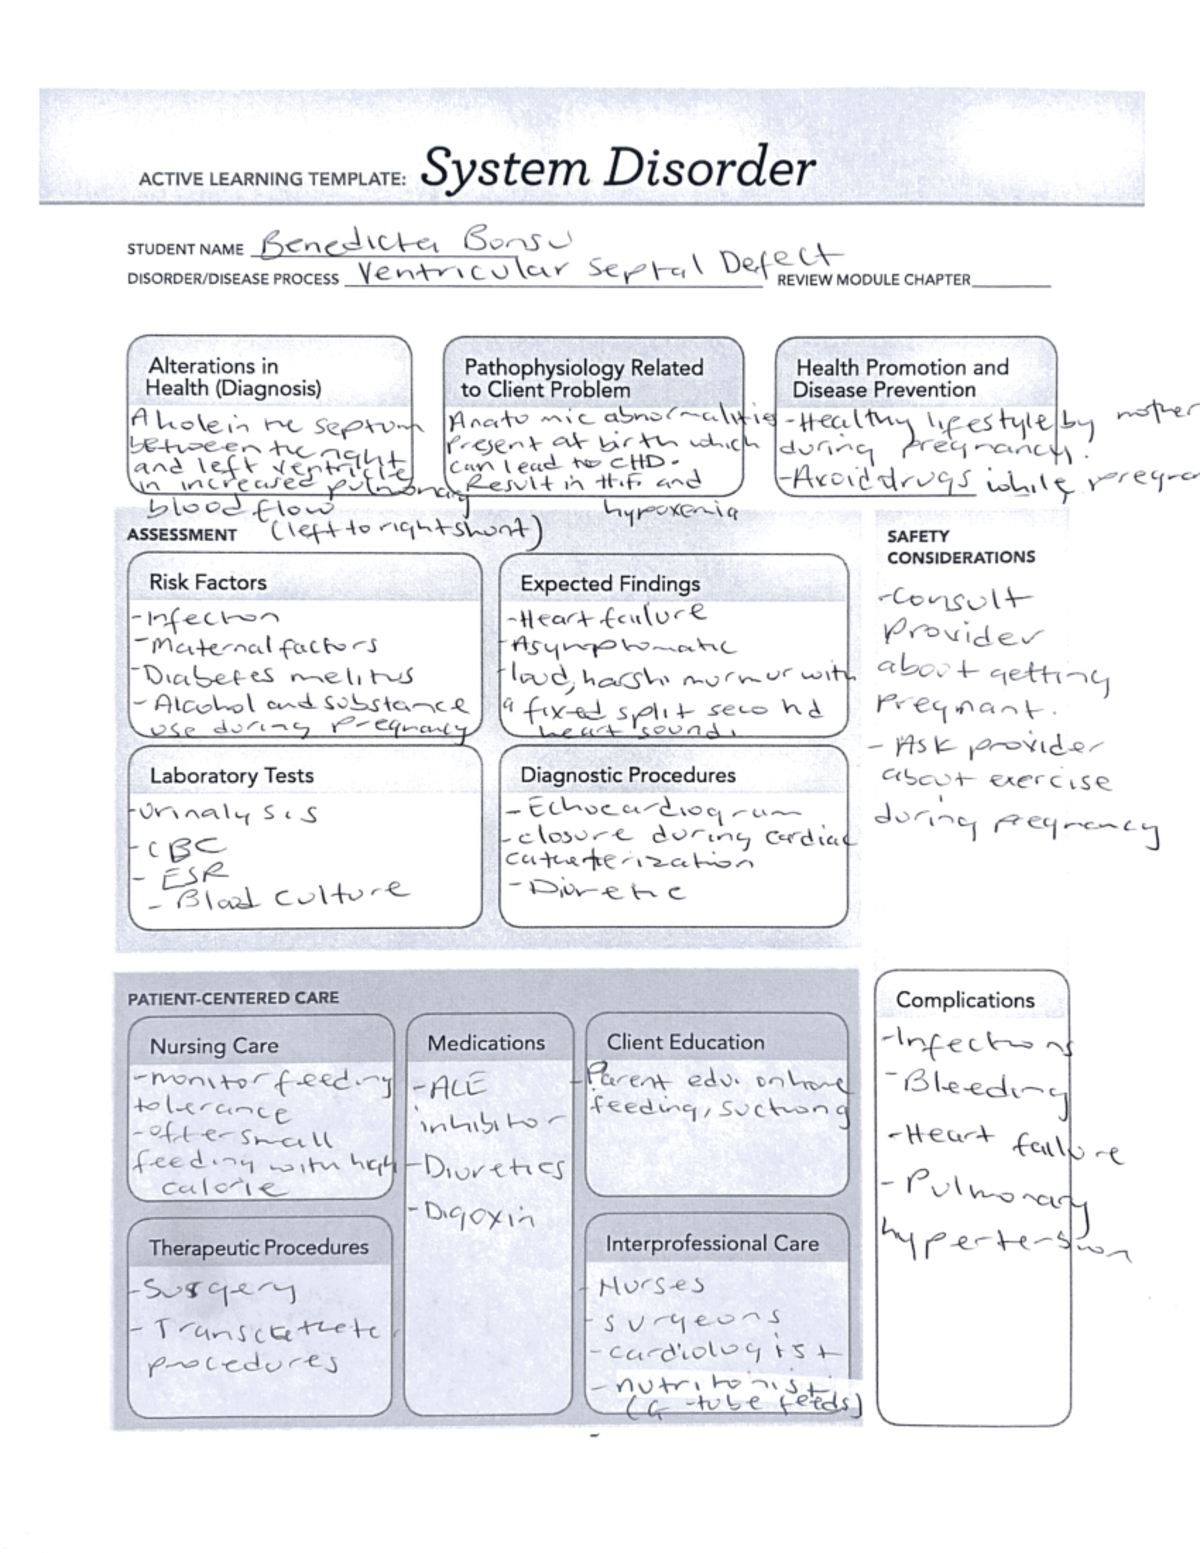 ACTIVE LEARNING TEMPLATE: System Disorder
STUDENT NAME Benedicta Bonsu
DISORDER/DISEASE PROCESS Ventricular Septal Defect REVIEW MODULE CHAPTER
Alterations in
Health (Diagnosis)
A hole in the septum
between the right
and left ventricle
in increased pulmonary
blood flow
(left to right shunt)
Pathophysiology Related
to Client Problem
Anatomic abnormalities
present at birth which
can lead to CHD.
Result in H.F. and
hypoxemia
Health Promotion and
Disease Prevention
-Healthy lifestyle by mother
during pregnancy.
-Avoid drugs while pregna
ASSESSMENT
Risk Factors
-Infection
-Maternal factors
-Diabetes melitus
-Alcohol and substance
use during pregnancy
Expected Findings
-Heart failure
-Asymptomatic
-loud, harsh murmur with
a fixed split second
heart sound.
Laboratory Tests
-Urinalysis
-CBC
- ESR
- Blood culture
Diagnostic Procedures
- Echocardiogram
-closure during cardiac
catheterization
- Diuretic
SAFETY
CONSIDERATIONS
-Consult
Provider
about getting
Pregnant.
- Ask provider
about exercise
during pregnancy
PATIENT-CENTERED CARE
Nursing Care
-monitor feeding
tolerance
-offer small
feeding with high
calorie
Medications
-ACE
inhibitor
-Diuretics
-Digoxin
Client Education
-Parent edu. on home
feeding, suctiong
Therapeutic Procedures
-Surgery
- Transcathete
procedures
Interprofessional Care
- Nurses
- surgeons
- cardiologist
- nutritonist
(G-tube feeds)
Complications
-Infections
-Bleeding
-Heart failure
- Pulmonary
hypertension